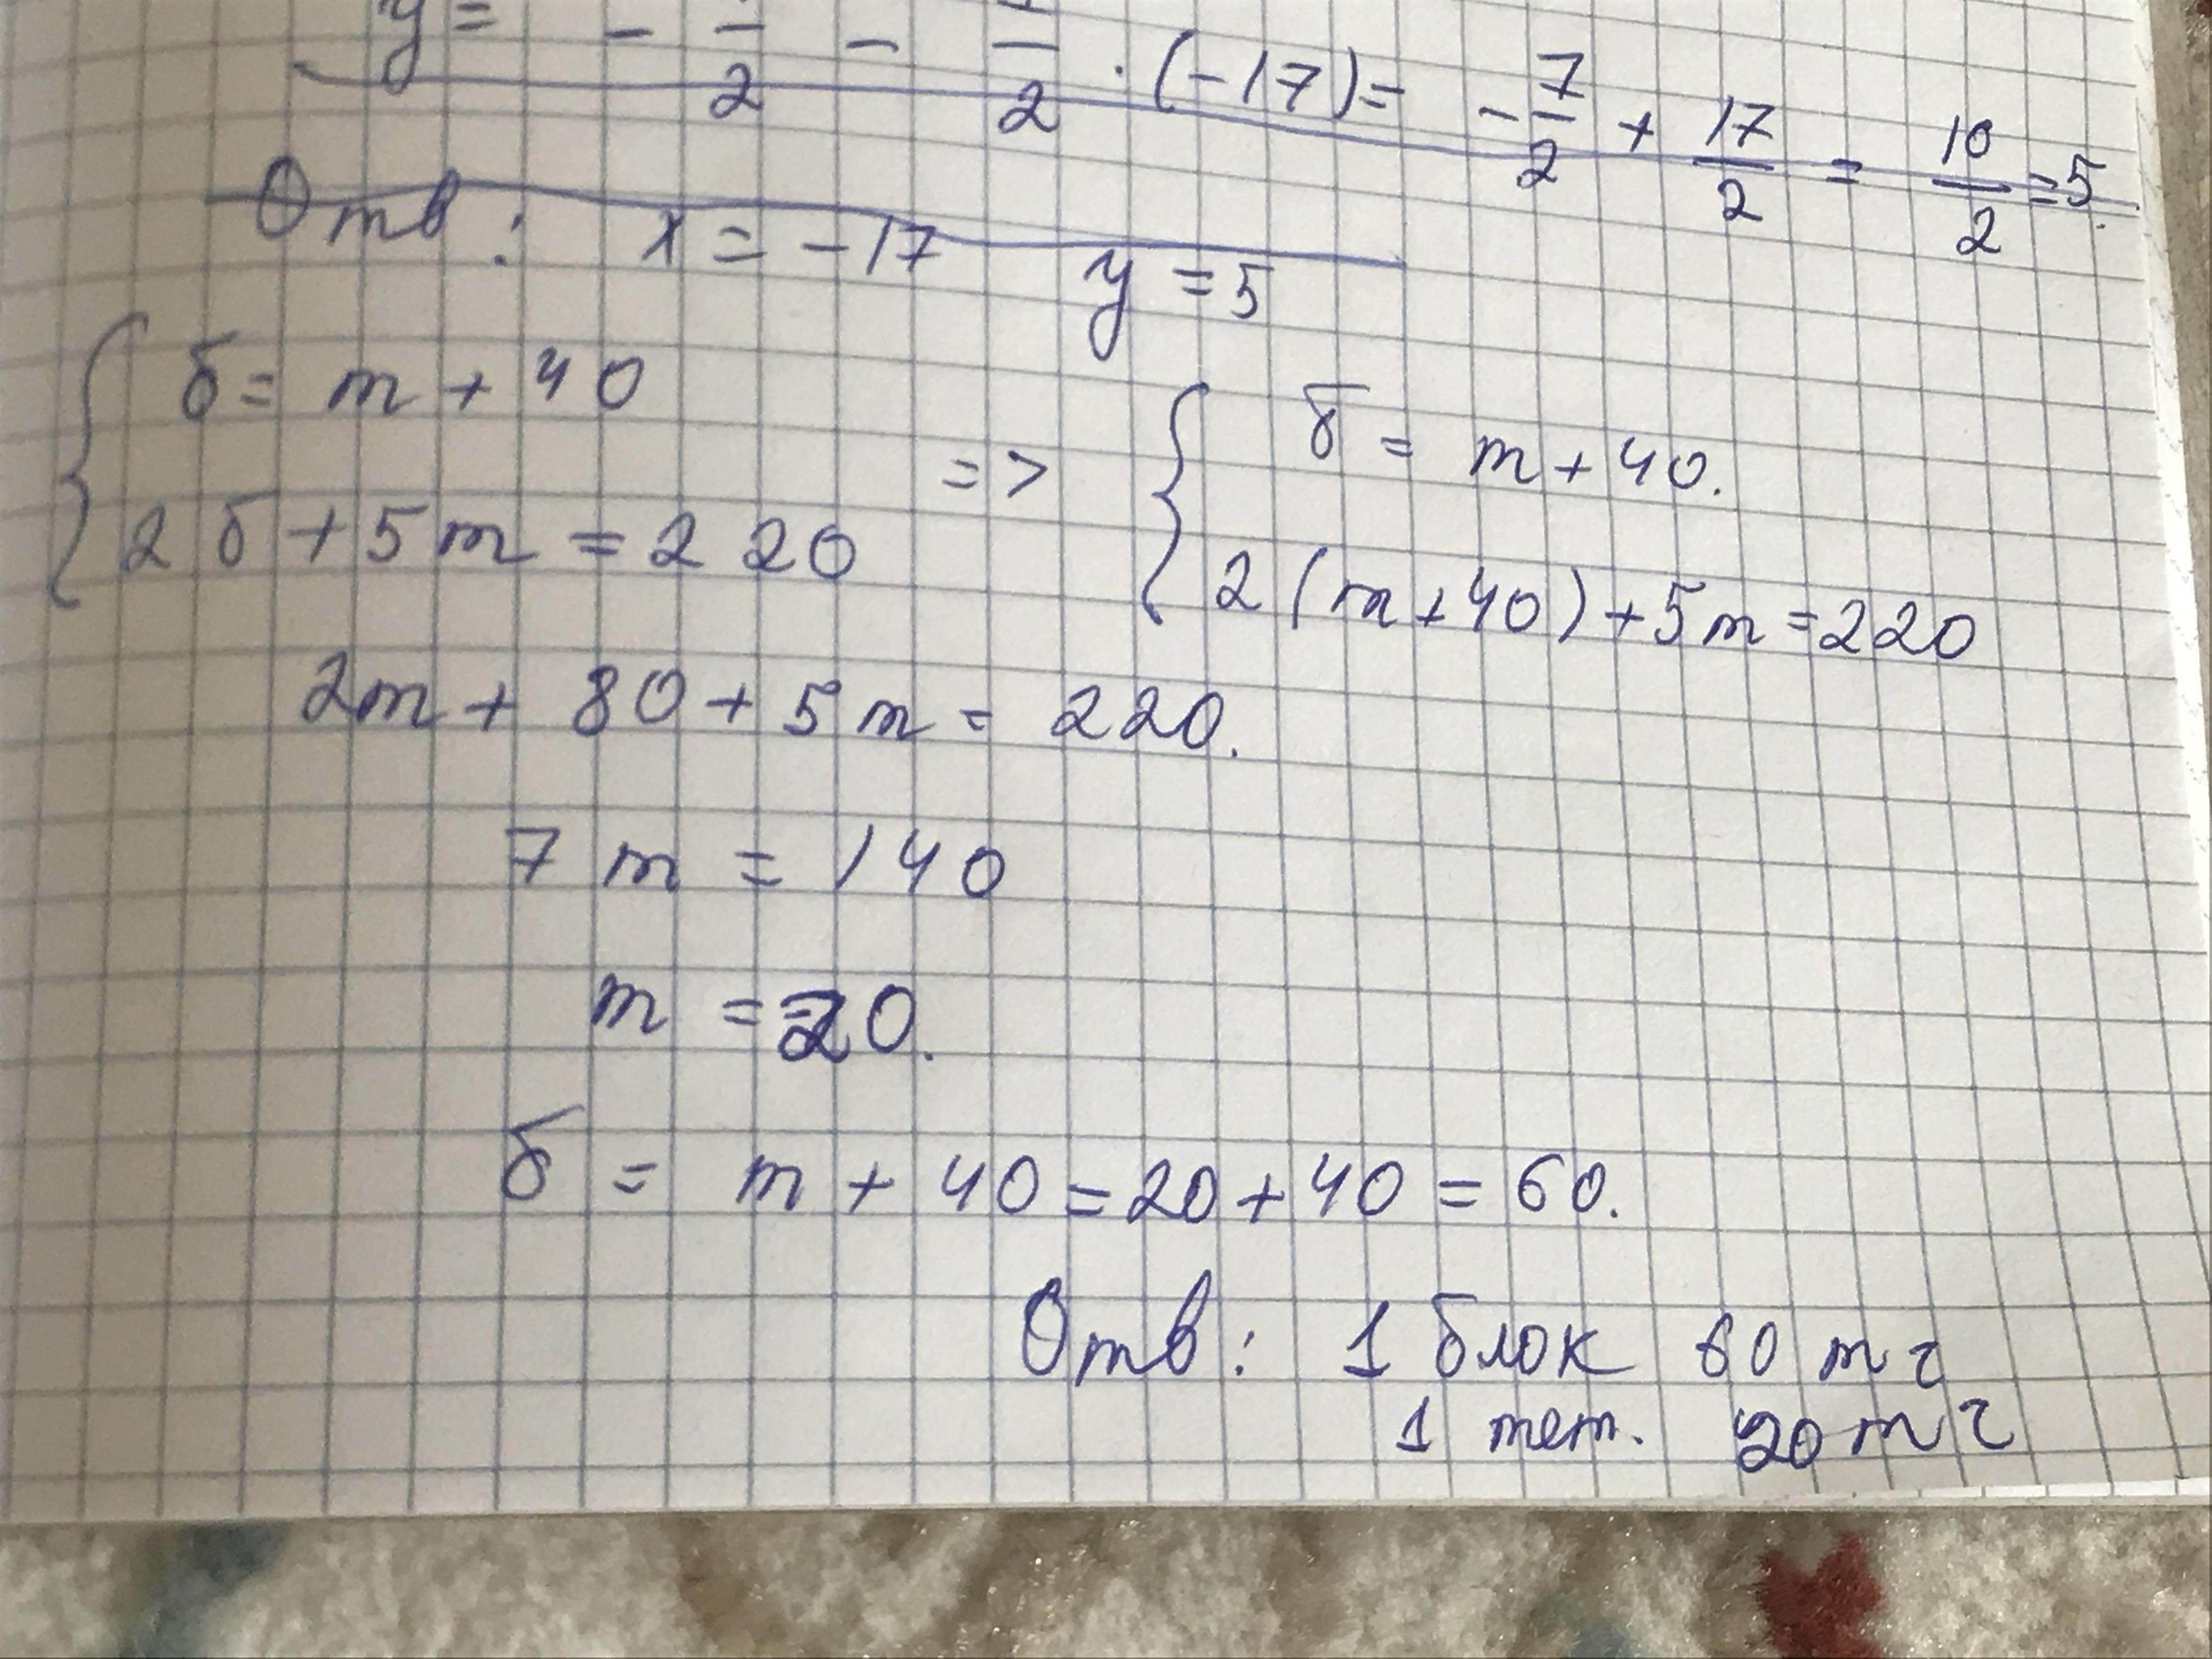 y = - /2 - /2 · (-17) = - 7/2 + 17/2 = 10/2 = 5.
Отв: x = -17 y = 5
{ б = т + 40 => { б = т + 40.
2б + 5т = 220 2(т + 40) + 5т = 220
2т + 80 + 5т = 220.
7т = 140
т = 20.
б = т + 40 = 20 + 40 = 60.
Отв: 1 блок 60 тг
1 тет. 20 тг